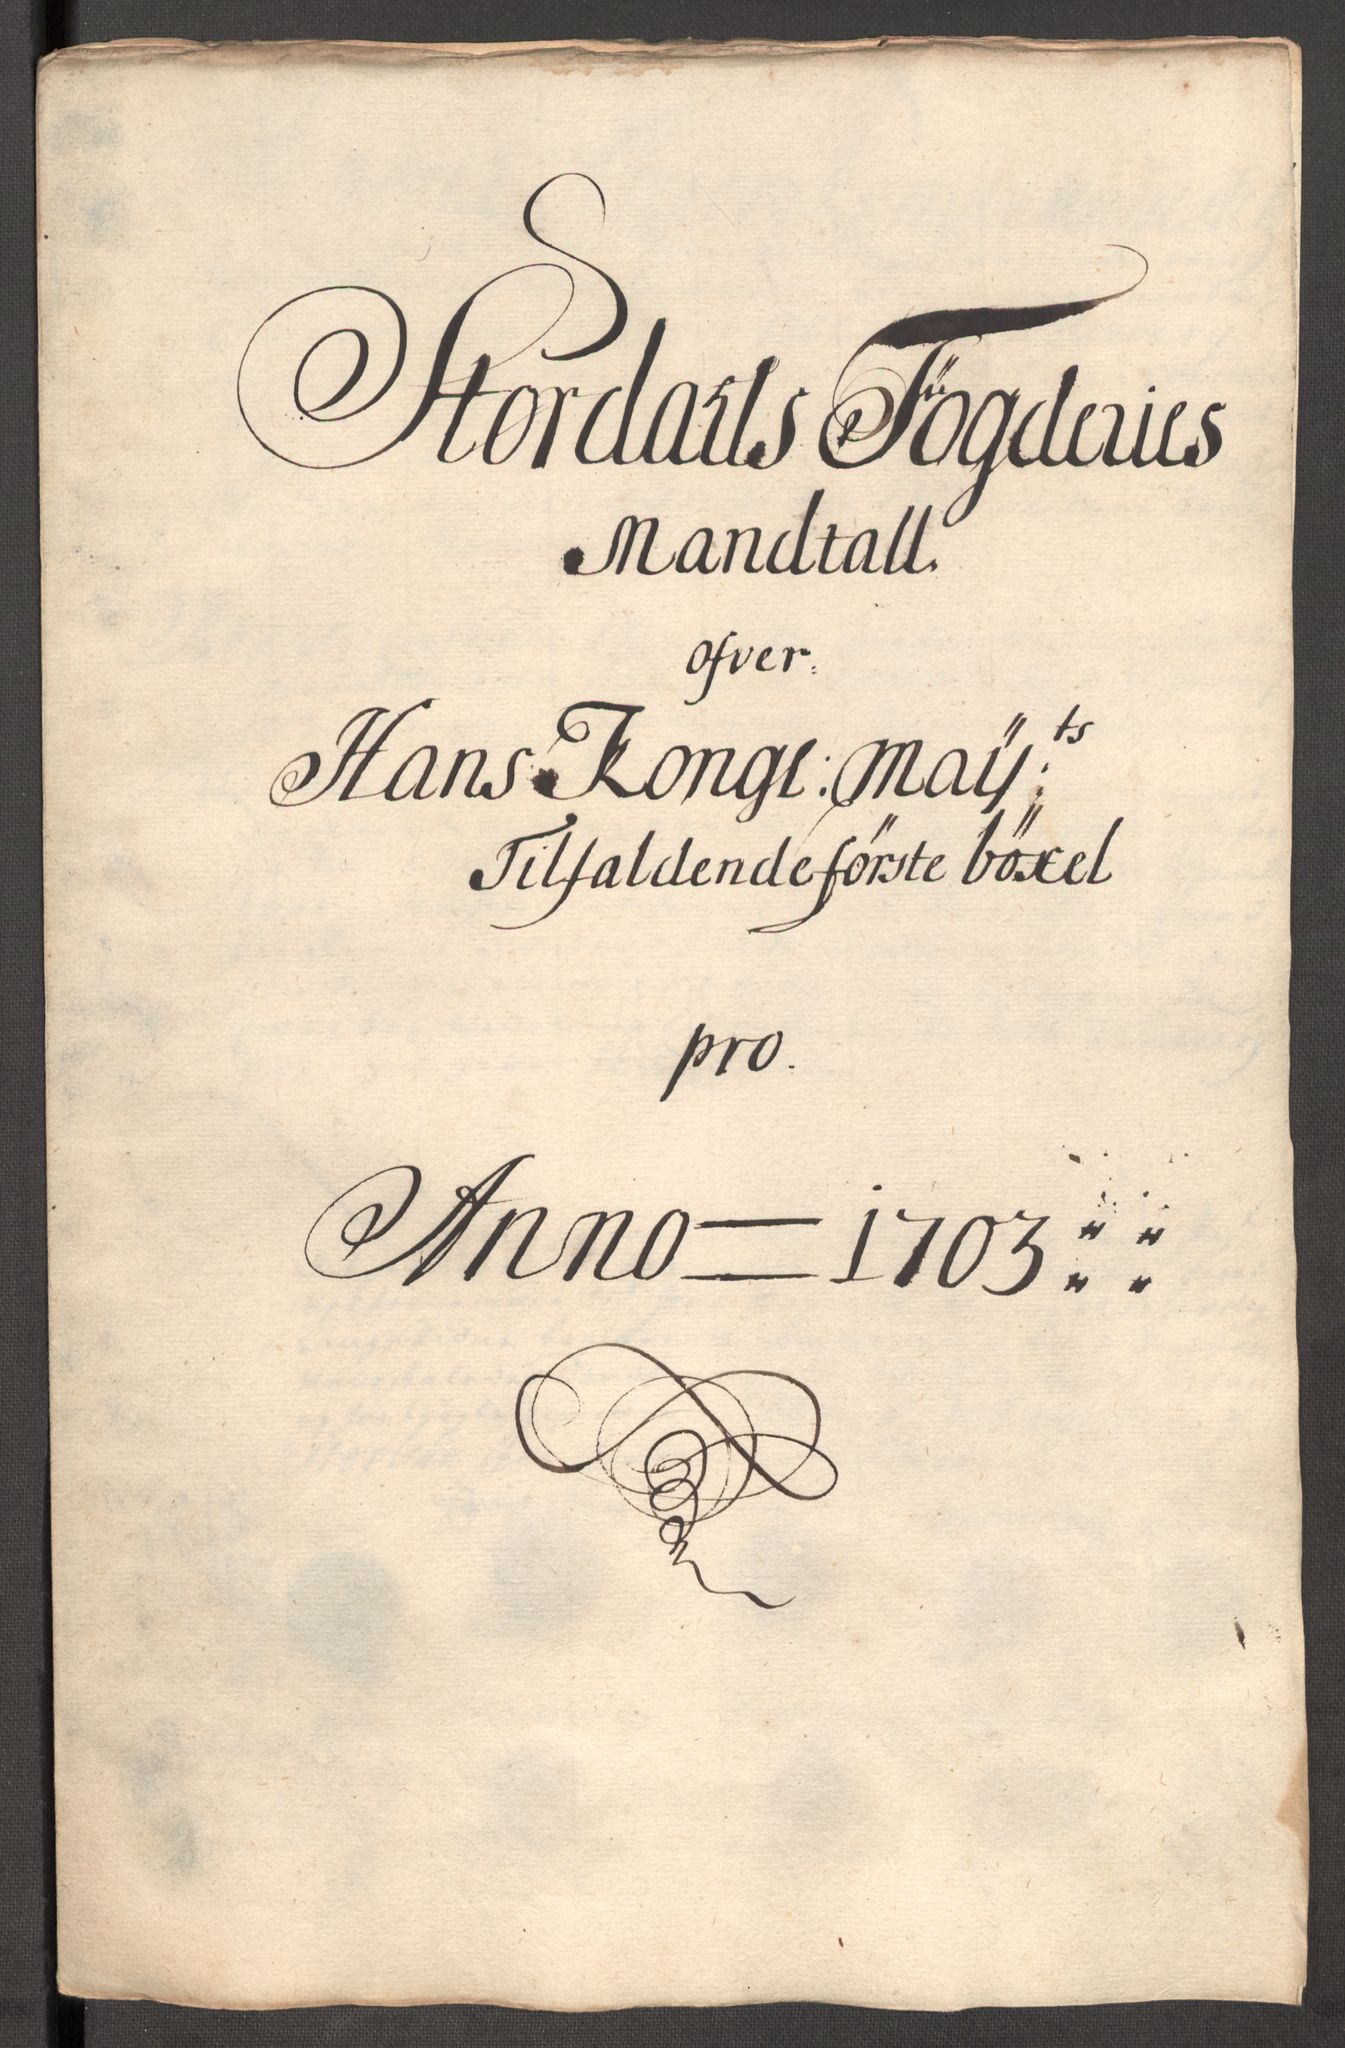 Stordalls Fögderies
Mandtall.
ofver.
Hans Kongl: Maÿ:ts
Tilfaldende förste böxel
pro.
Anno = 1703